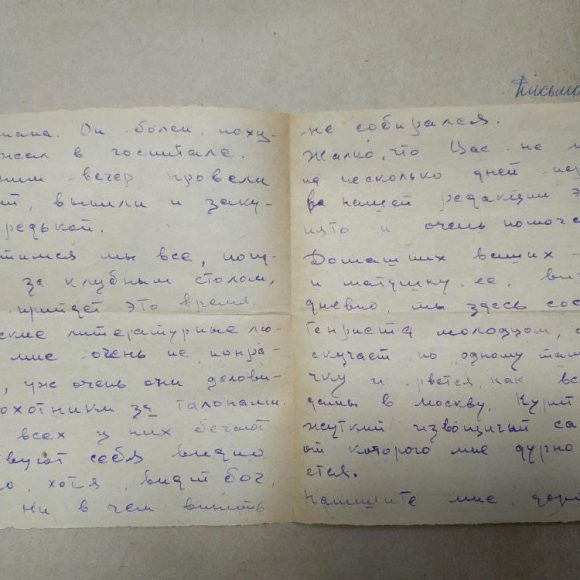 Письмо
мана. Он болен, поху-
жал в госпитале.
ним вечер провели
выпили и заку-
редькой.
тимся мы все, пош-
за клубным столом,
прийдет это время.
ские литературные лю-
мне очень не понра-
, уже очень они делови-
охотники за талонами.
всех у них бегают
вуют себя видно
о, хотя, видит бог,
ни в чем винить
не собирался.
Жалко, что Вас не м
на несколько дней
ра нашей редакции
што и очень помоч
Домашних ваших -
и матушку ее, ви
дневно, мы здесь сос
Генриэта молодцом,
скучает по одному там
чку и рвется, как вс
дамы в Москву. Курит
жуткий извощичий са
от которого мне дурно
ется.
Напишите мне, дор